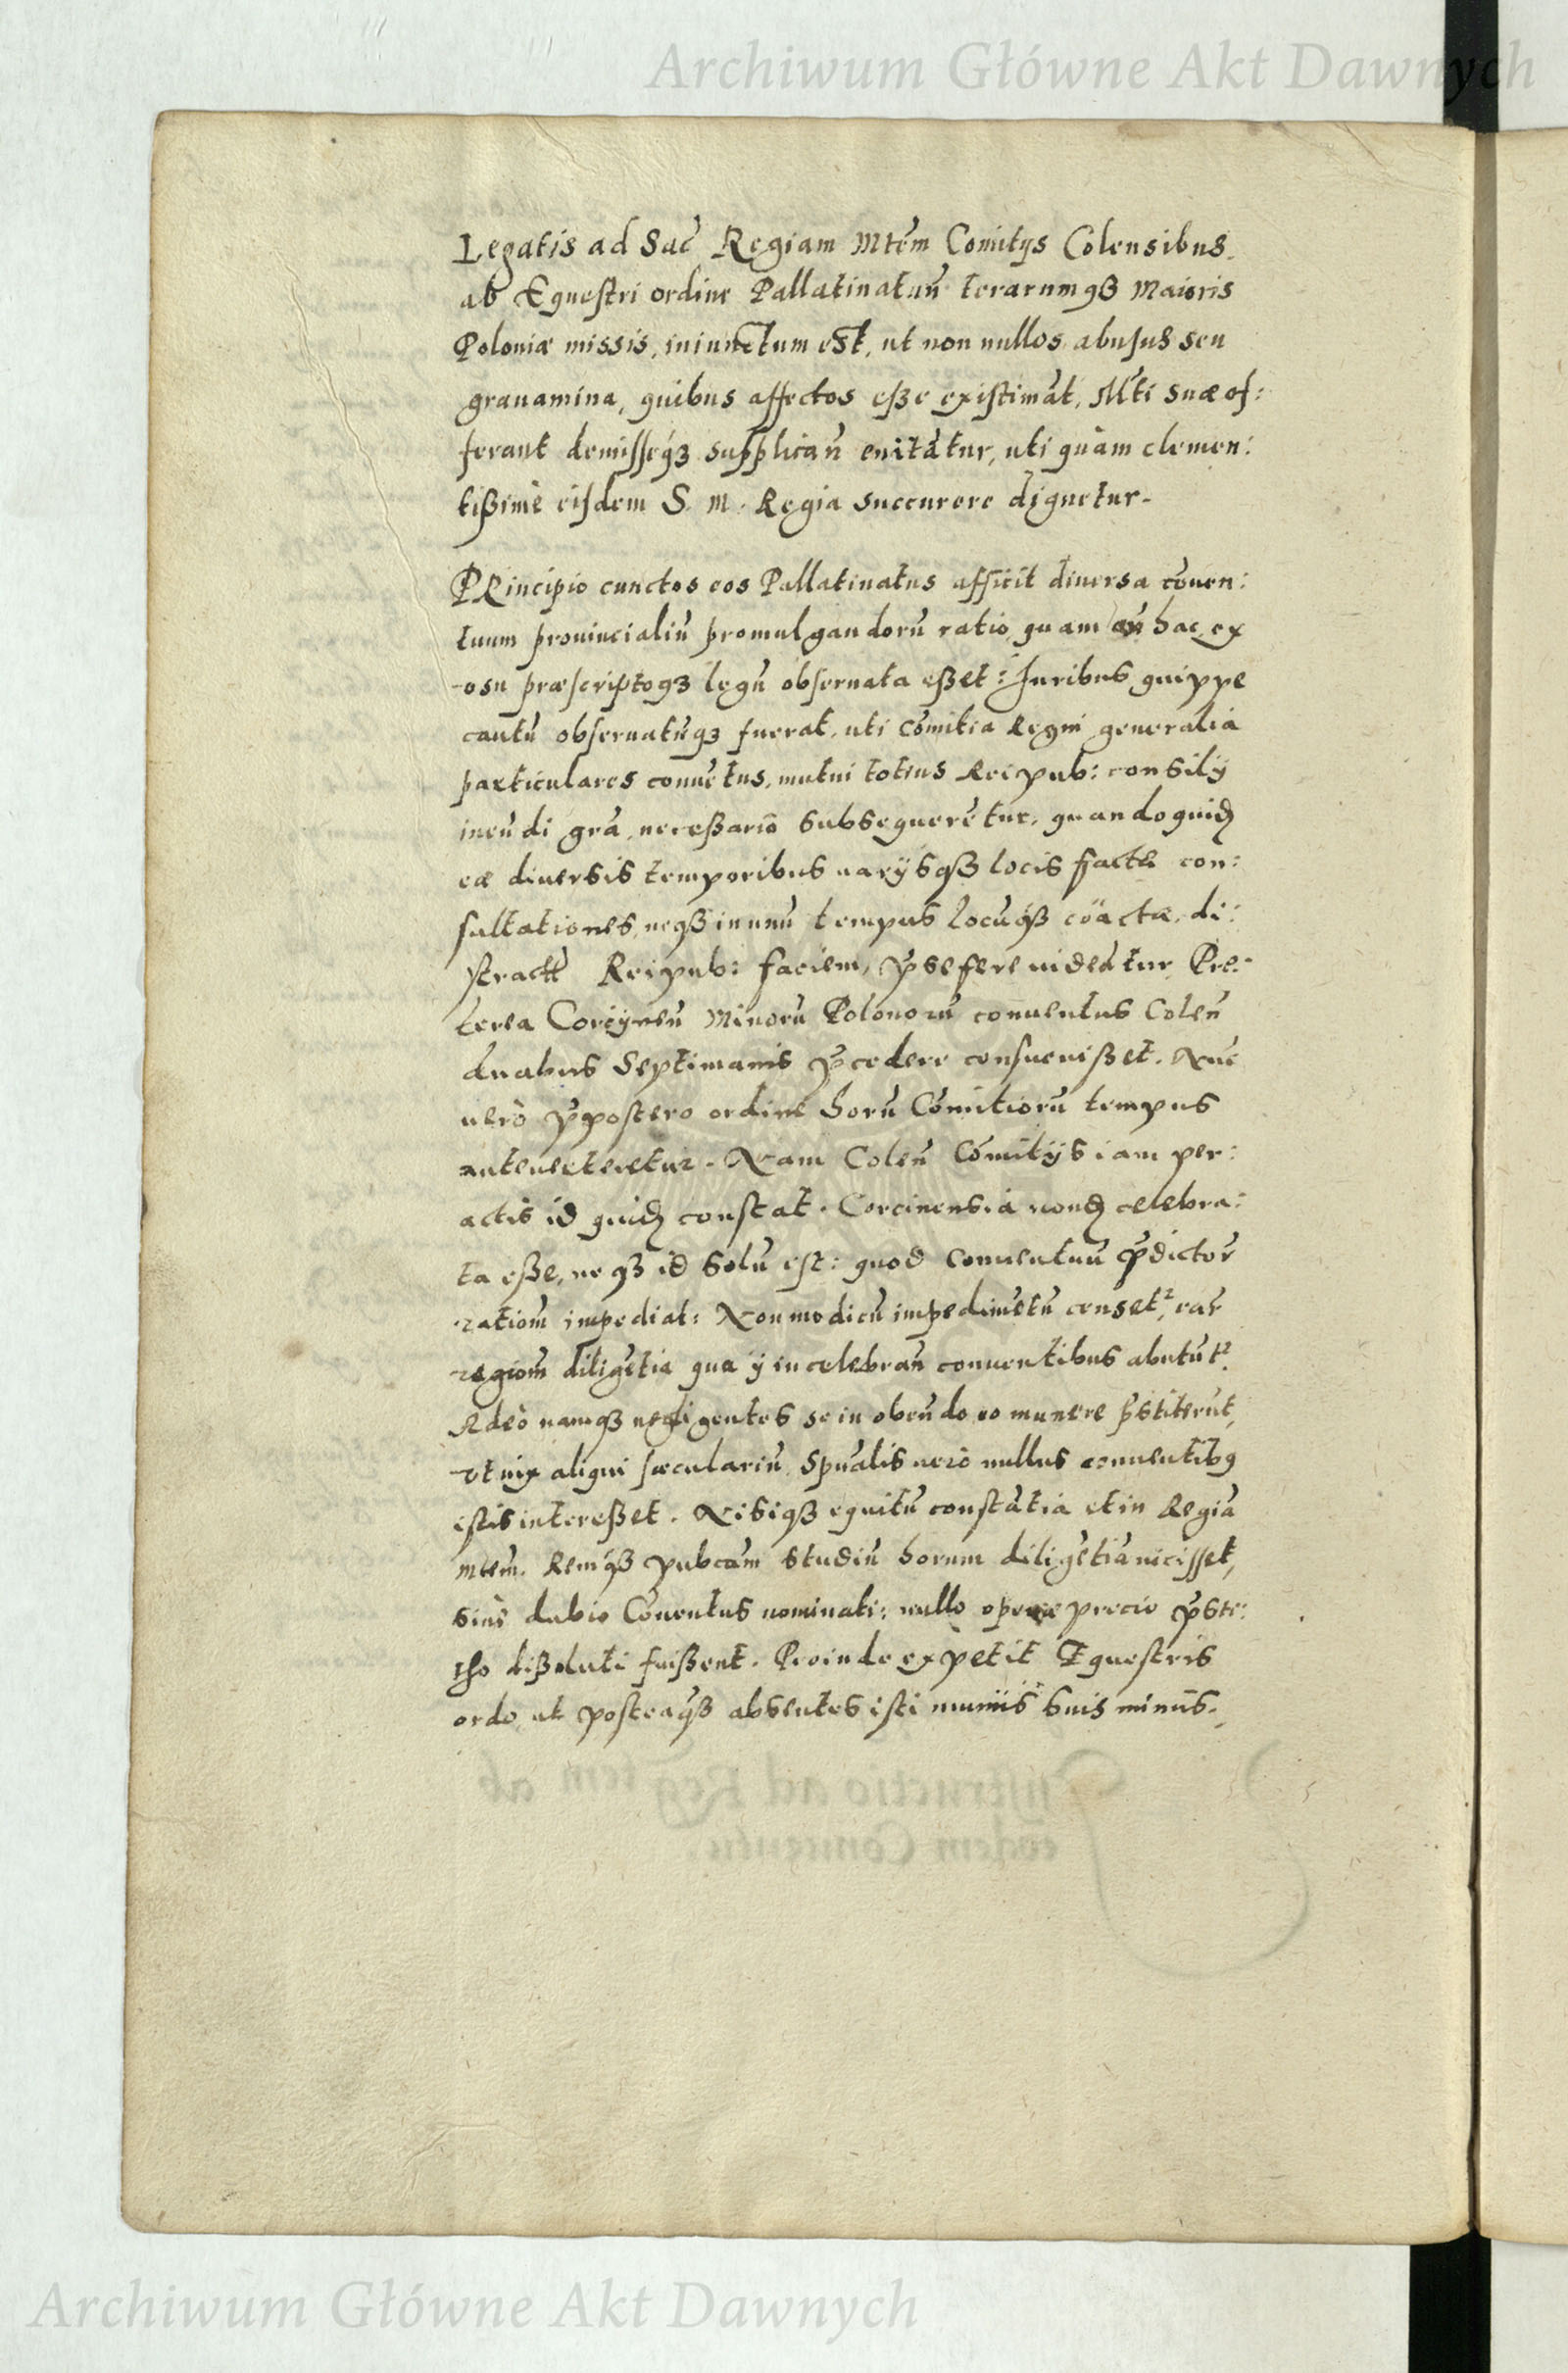 Archiwum Główne Akt Dawnych
Legatis ad Sac̃ Regiam Mtẽm Comitijs Colensibus.
ab Equestri ordine Pallatinatuũ terarumqȝ Maioris
Poloniæ missis, iniunctum est, ut non nullos abusus seu
grauamina, quibus affectos eße existimãt, Mti suæ of:
ferant demisseqȝ supplicañ enitãtur, uti quàm clemen:
tißimè eisdem S. M. Regia succurere dignetur.
PRincipio cunctos eos Pallatinatus afficit diuersa cõuen:
tuum prouincialiũ promulgandorũ ratio, quam hac ex
usu præscriptoqȝ legũ obseruata eßet: Iuribus quippe
cautũ obseruatũqȝ fuerat, uti Comitia Regni generalia
particulares conuẽtus, mutui totius Reipub: consilij
ineũdi grã, neceßario subsequerẽtur, quandoquid̃
eæ diuersis temporibus uarijsqȝ locis factæ con:
sultationes, neqȝ in unũ tempus locũqȝ coactæ, di:
stractæ Reipub: faciem, p̃ se fere uideãtur. Pre:
terea Corcijneñ Minorũ Polonorũ conuentus Coleñ
duabus Septimanis p̃cedere consueuißet. Nũc
uerò p̃postero ordine horũ Comitiorũ tempus
anteuerteretur. Nam Coleñ Comitijs iam per:
actis id quid̃ constat. Corcinensia nond̃ celebra:
ta eße, neqȝ id solũ est: quod Conuentuũ p̃dictor̃
rationẽ impediat: Non modicũ impedimẽtũ censetr, ear̃
regionũ diligẽtia qua ij in celebrañ conuentibus abutũtr.
Adeò namqȝ negligentes se in obeũdo eo munere p̃stiterũt,
vt uix aliqui sæculariũ, Spũalis uerò nullus conuentibꝰ
istis intereßet. Nisiqȝ equitũ constãtia et in Regiã
Mtem. Remqȝ pubcam studiũ horum diligẽtiã uicisset,
sinè dubio Cõuentus nominati: nullo operæ precio p̃sti:
tho dißoluti fuißent. Proinde expetit Equestris
ordo, ut posteaqȝ absentes isti muniis suis minus.
Instructio ad Reg Mtem ab
eodem Conuentu.
Archiwum Główne Akt Dawnych